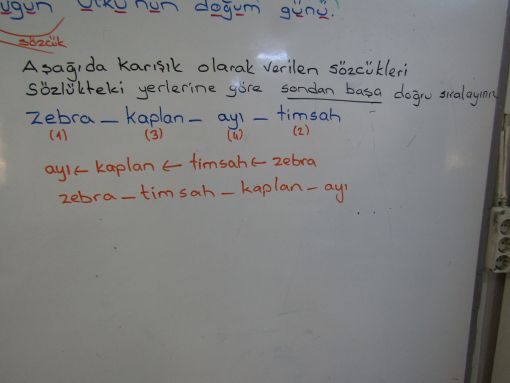 ugün Ülkü'nün doğum günü.
sözcük
Aşağıda karışık olarak verilen sözcükleri
sözlükteki yerlerine göre sondan başa doğru sıralayınız.
zebra – kaplan – ayı – timsah
(1) (3) (4) (2)
ayı ← kaplan ← timsah ← zebra
zebra – timsah – kaplan – ayı